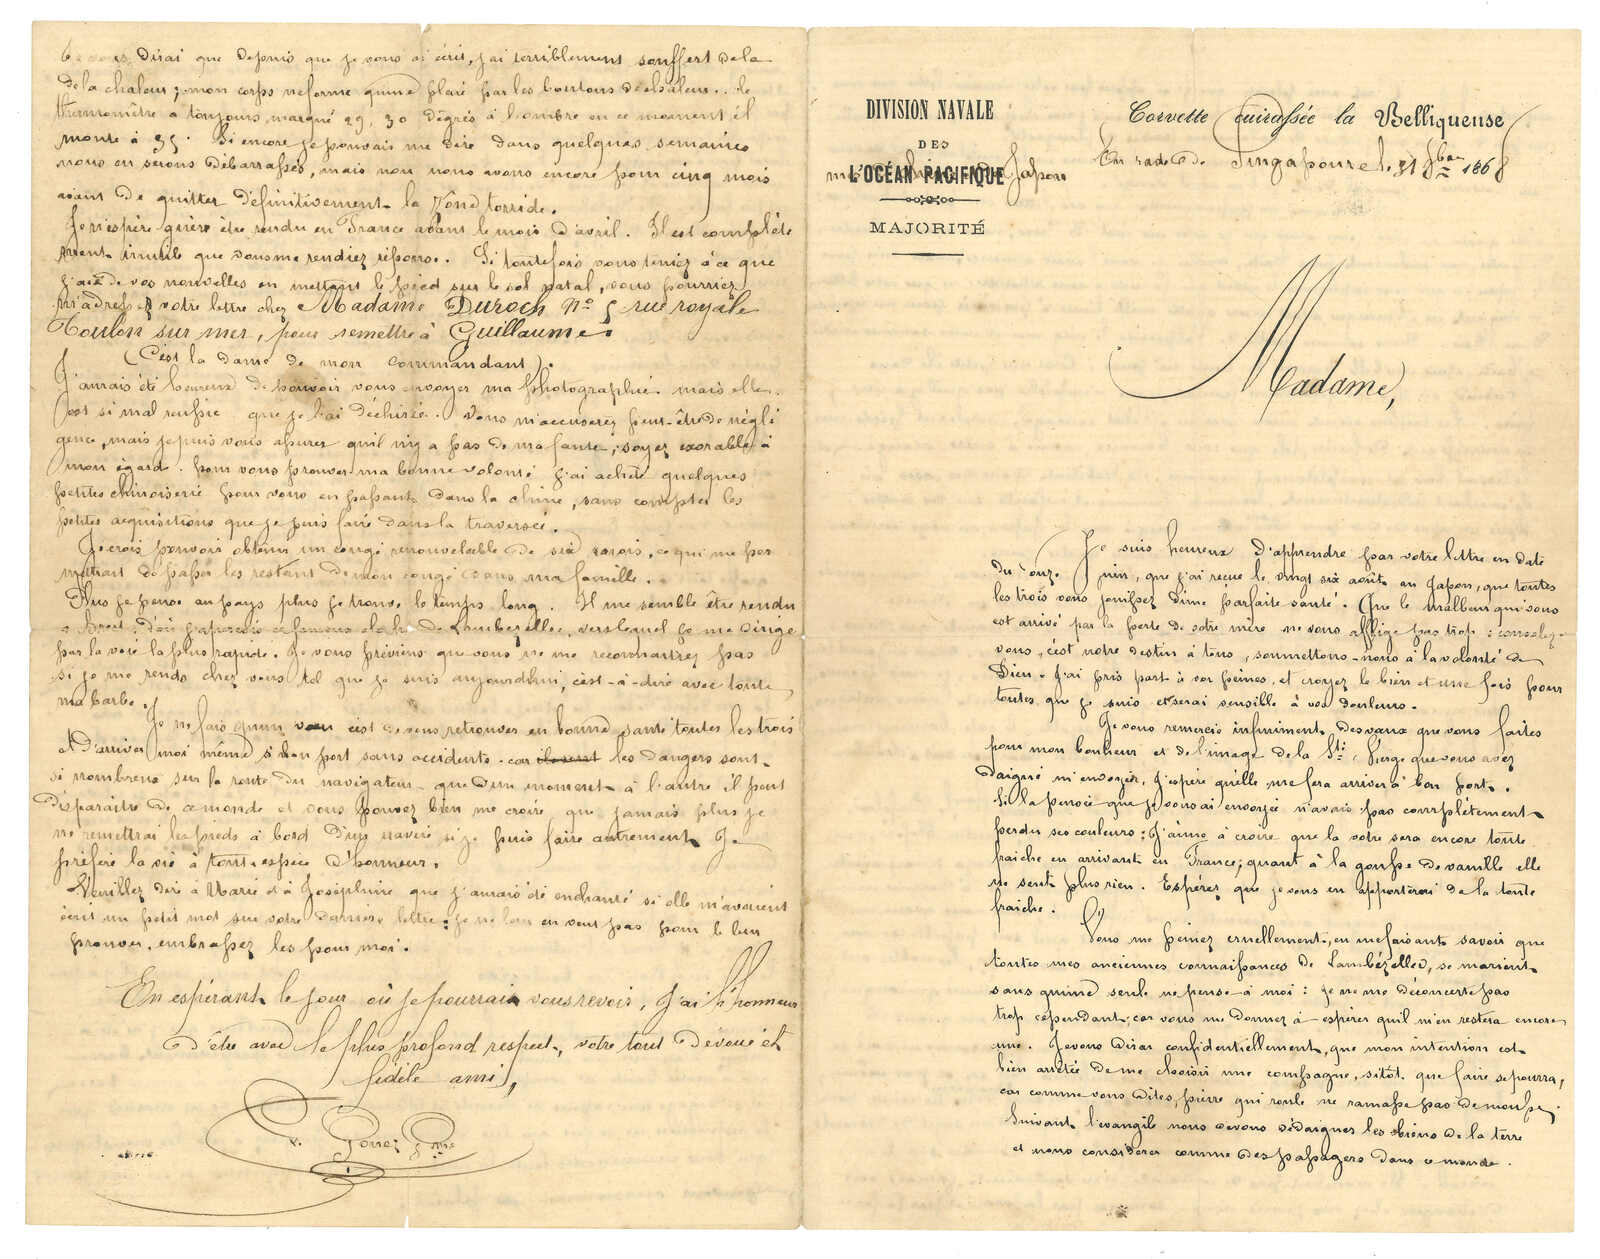 DIVISION NAVALE
DES
L'OCÉAN PACIFIQUE
Japon
MAJORITÉ
Corvette cuirassée la Belliqueuse
En rade de Singapoure le 31 8bre 1868
Madame,
Je suis heureux d'apprendre par votre lettre en date
du onze Juin, que j'ai reçue le vingt six août au Japon, que toutes
les trois vous jouissez d'une parfaite santé. Que le malheur qui vous
est arrivé par la perte de votre mère ne vous afflige pas trop : consolez
vous, c'est notre destin à tous, soumettons-nous à la volonté de
Dieu. J'ai pris part à vos peines, et croyez le bien et une fois pour
toutes que je suis et serai sensible à vos douleurs.
Je vous remercie infiniment des vœux que vous faites
pour mon bonheur et de l'image de la Ste Vierge que vous avez
daigné m'envoyer, j'espère qu'elle me fera arriver à bon port.
Si la pensée que je vous ai envoyée n'avais pas complètement
perdu ses couleurs : J'aime à croire que la votre sera encore toute
fraiche en arrivant en France; quant à la gousse de vanille elle
ne sent plus rien. Espérez que je vous en apporterai de la toute
fraiche.
Vous me peinez cruellement, en me faisant savoir que
toutes mes anciennes connaissances de Lambézellec, se marient
sans qu'une seule ne pense à moi : je ne me déconcerte pas
trop cependant, car vous me donnez à espérer qu'il m'en restera encore
une. Je vous dirai confidentiellement, que mon intention est
bien arrêtée de me choisir une compagne, sitôt que faire se pourra,
car comme vous dites, pierre qui roule ne ramasse pas de mousse,
Suivant l'evangile nous devons dédaigner les biens de la terre
et nous considérer comme des passagers dans ce monde.
Je vous dirai que depuis que je vous ai écrit, j'ai terriblement souffert de la
de la chaleur; mon corps ne forme qu'une plaie par les boutons de chaleur. le
thermomètre a toujours marqué 29, 30 dégrés à l'ombre en ce moment il
monte à 35. Si encore je pouvais me dire dans quelques semaines
nous en serons débarrassés, mais non nous avons encore pour cinq mois
avant de quitter définitivement la zône torride.
Je n'espère guère être rendu en France avant le mois d'avril. Il est complète
ment inutile que vous me rendiez réponse. Si toutefois vous teniez à ce que
j'aie de vos nouvelles en mettant le pied sur le sol natal, vous pourriez
m'adresser votre lettre chez Madame Duroch No 5 rue royale
Toulon sur mer, pour remettre à Guillaume.
(C'est la dame de mon commandant).
J'aurais été heureux de pouvoir vous envoyer ma photographie. mais elle
est si mal reussie que je l'ai déchirée. Vous m'accuserez peut-être de négli
gence, mais je puis vous assurez qu'il n'y a pas de ma faute; soyez exorable à
mon égard. Pour vous prouver ma bonne volonté j'ai acheté quelques
petites chinoiserie pour vous en passant dans la chine, sans compter les
petites acquisitions que je puis faire dans la traversée.
Je crois pouvoir obtenir un congé renouvelable de six mois, ce qui me per
mettrait de passer les restant de mon congé dans ma famille.
Plus je pense au pays plus je trouve le temps long. Il me semble être rendu
à Brest, d'où j'aperçois ce fameux clocher de Lambezellec, vers lequel je me dirige
par la voie la plus rapide. Je vous préviens que vous ne me reconnaitrez pas
si je me rends chez vous tel que je suis aujourd'hui, c'est-à-dire avec toute
ma barbe.
Je ne fais qu'un vœu c'est de vous retrouver en bonne santé toutes les trois
et d'arriver moi même à bon port sans accidents. car les dangers sont
si nombreux sur la route du navigateur que d'un moment à l'autre il peut
disparaitre de ce monde et vous pouvez bien me croire que jamais plus je
ne remettrai les pieds à bord d'un navire si je puis faire autrement. Je
préfère la vie à toute espèce d'honneur.
Veuillez dire à Marie et à Joséphine que j'aurais été enchanté si elle m'avaient
écrit un petit mot sur votre dernière lettre : je ne leur en veux pas pour le leur
prouver, embrassez les pour moi.
En espérant le jour où je pourrais vous revoir, J'ai l'honneur
d'être avec le plus profond respect, votre tout dévoué et
fidèle ami,